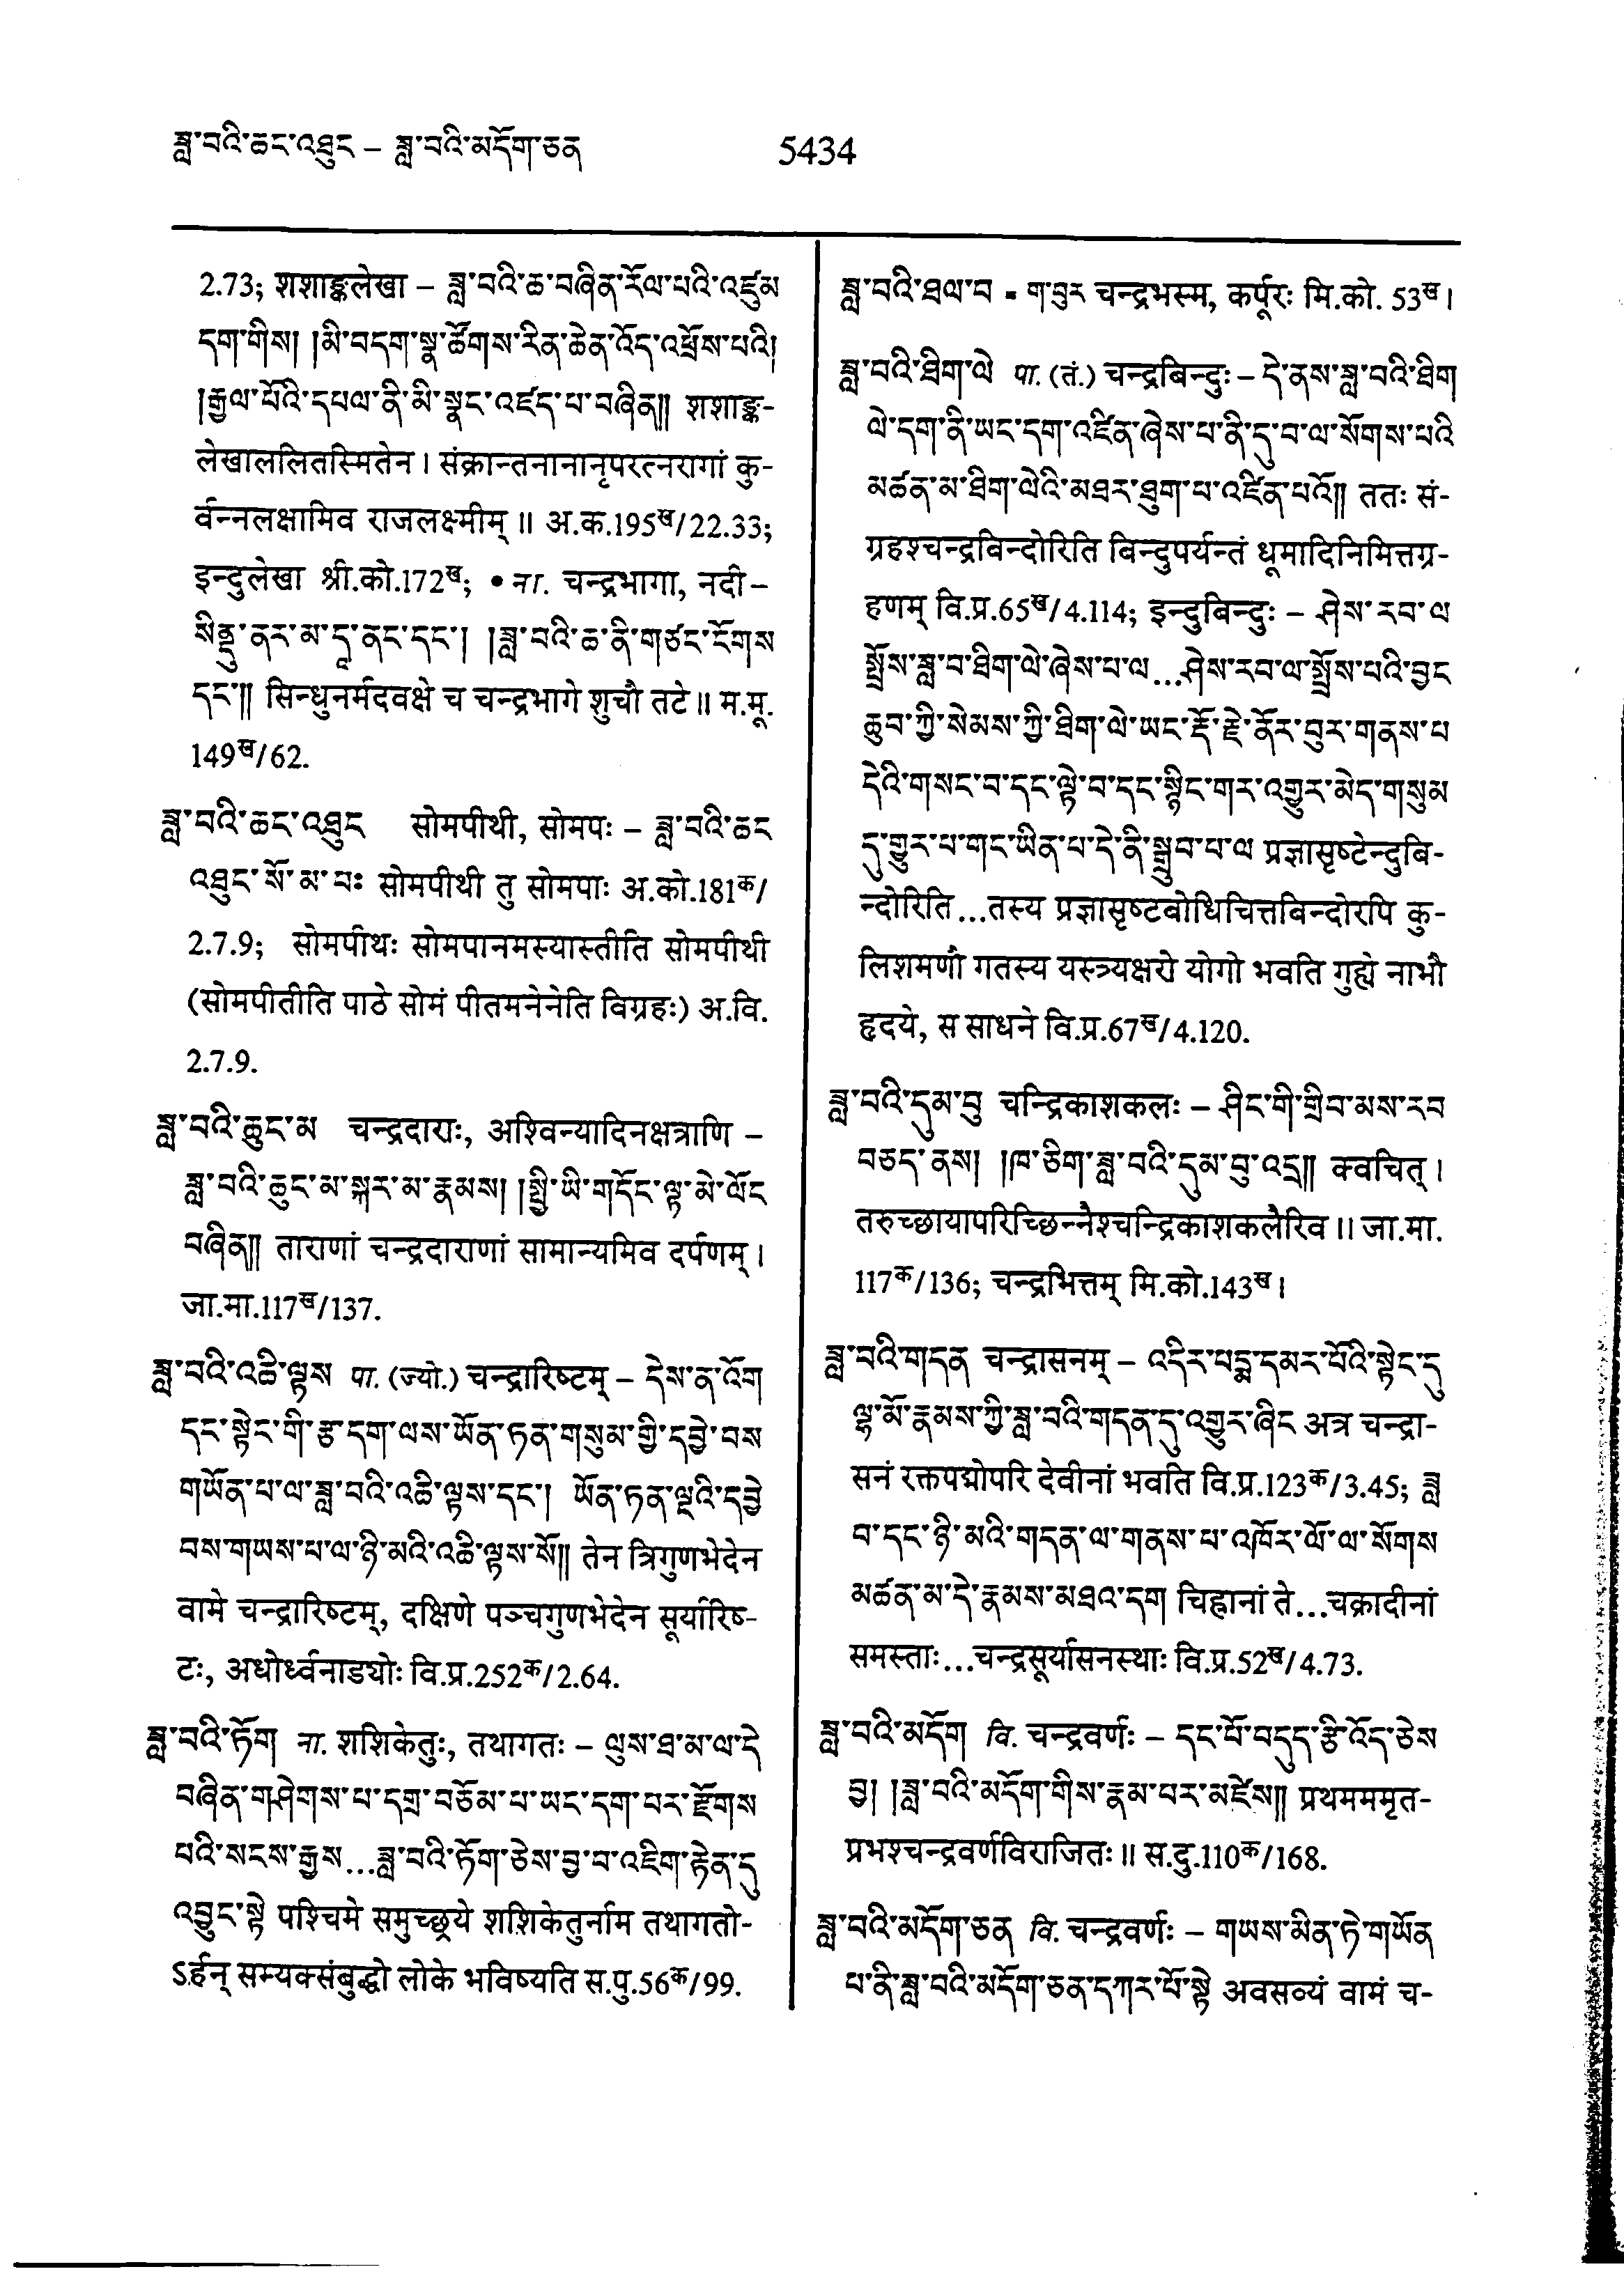 ཟླ་བའི་ཆང་འཐུང – ཟླ་བའི་མདོག་ཅན
5434
2.73; शशाङ्कलेखा – ཟླ་བའི་ཆ་བཞིན་རོལ་པའི་འཛུམ
དག་གིས། །མི་བདག་སྣ་ཚོགས་རིན་ཆེན་འོད་འཕྲོས་པའི།
།རྒྱལ་པོའི་དཔལ་ནི་མི་སྣང་འཛད་པ་བཞིན།། शशाङ्क-
लेखाललितस्मितेन । संक्रान्तनानानृपरत्नरागां कु-
र्वन्नलक्षामिव राजलक्ष्मीम् ॥ अ.क.195ख/22.33;
इन्दुलेखा श्री.को.172ख; • ना. चन्द्रभागा, नदी –
སིནྡྷུ་ནར་མ་དཱ་ནང་དང་། །ཟླ་བའི་ཆ་ནི་གཙང་ངོགས
དང་།། सिन्धुनर्मदवक्षे च चन्द्रभागे शुचौ तटे ॥ म.मू.
149ख/62.
ཟླ་བའི་ཆང་འཐུང सोमपीथी, सोमपः – ཟླ་བའི་ཆང
འཐུང་སོ་མ་པཿ सोमपीथी तु सोमपाः अ.को.181क/
2.7.9; सोमपीथः सोमपानमस्यास्तीति सोमपीथी
(सोमपीतीति पाठे सोमं पीतमनेनेति विग्रहः) अ.वि.
2.7.9.
ཟླ་བའི་ཆུང་མ चन्द्रदाराः, अश्विन्यादिनक्षत्राणि –
ཟླ་བའི་ཆུང་མ་སྐར་མ་རྣམས། །སྤྱི་ཡི་གདོང་ལྟ་མེ་ལོང
བཞིན།། ताराणां चन्द्रदाराणां सामान्यमिव दर्पणम् ।
जा.मा.117ख/137.
ཟླ་བའི་འཆི་ལྟས पा. (ज्यो.) चन्द्रारिष्टम् – དེས་ན་འོག
དང་སྟེང་གི་རྩ་དག་ལས་ཡོན་ཏན་གསུམ་གྱི་དབྱེ་བས
གཡོན་པ་ལ་ཟླ་བའི་འཆི་ལྟས་དང་། ཡོན་ཏན་ལྔའི་དབྱེ
བས་གཡས་པ་ལ་ཉི་མའི་འཆི་ལྟས་སོ།། तेन त्रिगुणभेदेन
वामे चन्द्रारिष्टम्, दक्षिणे पञ्चगुणभेदेन सूर्यारिष-
टः, अधोर्ध्वनाड्योः वि.प्र.252क/2.64.
ཟླ་བའི་ཏོག ना. शशिकेतुः, तथागतः – ལུས་ཐ་མ་ལ་དེ
བཞིན་གཤེགས་པ་དགྲ་བཅོམ་པ་ཡང་དག་པར་རྫོགས
པའི་སངས་རྒྱས...ཟླ་བའི་ཏོག་ཅེས་བྱ་བ་འཇིག་རྟེན་དུ
འབྱུང་སྟེ पश्चिमे समुच्छ्रये शशिकेतुर्नाम तथागतो-
ऽर्हन् सम्यक्संबुद्धो लोके भविष्यति स.पु.56क/99.
ཟླ་བའི་ཐལ་བ ▪ ག་བུར चन्द्रभस्म, कर्पूरः मि.को. 53ख ।
ཟླ་བའི་ཐིག་ལེ पा. (तं.) चन्द्रबिन्दुः – དེ་ནས་ཟླ་བའི་ཐིག
ལེ་དག་ནི་ཡང་དག་འཛིན་ཞེས་པ་ནི་དུ་བ་ལ་སོགས་པའི
མཚན་མ་ཐིག་ལེའི་མཐར་ཐུག་པ་འཛིན་པའོ།། ततः सं-
ग्रहश्चन्द्रबिन्दोरिति बिन्दुपर्यन्तं धूमादिनिमित्तग्र-
हणम् वि.प्र.65ख/4.114; इन्दुबिन्दुः – ཤེས་རབ་ལ
སྤྲོས་ཟླ་བ་ཐིག་ལེ་ཞེས་པ་ལ...ཤེས་རབ་ལ་སྤྲོས་པའི་བྱང
ཆུབ་ཀྱི་སེམས་ཀྱི་ཐིག་ལེ་ཡང་རྡོ་རྗེ་ནོར་བུར་གནས་པ
དེའི་གསང་བ་དང་ལྟེ་བ་དང་སྙིང་གར་འགྱུར་མེད་གསུམ
དུ་གྱུར་པ་གང་ཡིན་པ་དེ་ནི་སྒྲུབ་པ་ལ प्रज्ञासृष्टेन्दुबि-
न्दोरिति...तस्य प्रज्ञासृष्टबोधिचित्तबिन्दोरपि कु-
लिशमणौ गतस्य यस्त्र्यक्षरो योगो भवति गुह्ये नाभौ
हृदये, स साधने वि.प्र.67ख/4.120.
ཟླ་བའི་དུམ་བུ चन्द्रिकाशकलः – ཤིང་གི་གྲིབ་མས་རབ
བཅད་ནས། །ཁ་ཅིག་ཟླ་བའི་དུམ་བུ་འདྲ།། क्वचित् ।
तरुच्छायापरिच्छिन्नैश्चन्द्रिकाशकलैरिव ॥ जा.मा.
117क/136; चन्द्रभित्तम् मि.को.143ख ।
ཟླ་བའི་གདན चन्द्रासनम् – འདིར་པདྨ་དམར་པོའི་སྟེང་དུ
ལྷ་མོ་རྣམས་ཀྱི་ཟླ་བའི་གདན་དུ་འགྱུར་ཞིང अत्र चन्द्रा-
सनं रक्तपद्मोपरि देवीनां भवति वि.प्र.123क/3.45; ཟླ
བ་དང་ཉི་མའི་གདན་ལ་གནས་པ་འཁོར་ལོ་ལ་སོགས
མཚན་མ་དེ་རྣམས་མཐའ་དག चिह्नानां ते...चक्रादीनां
समस्ताः...चन्द्रसूर्यासनस्थाः वि.प्र.52ख/4.73.
ཟླ་བའི་མདོག वि. चन्द्रवर्णः – དང་པོ་བདུད་རྩི་འོད་ཅེས
བྱ། །ཟླ་བའི་མདོག་གིས་རྣམ་པར་མཛེས།། प्रथमममृत-
प्रभश्चन्द्रवर्णविराजितः ॥ स.दु.110क/168.
ཟླ་བའི་མདོག་ཅན वि. चन्द्रवर्णः – གཡས་མིན་ཏེ་གཡོན
པ་ནི་ཟླ་བའི་མདོག་ཅན་དཀར་པོ་སྟེ अवसव्यं वामं च-